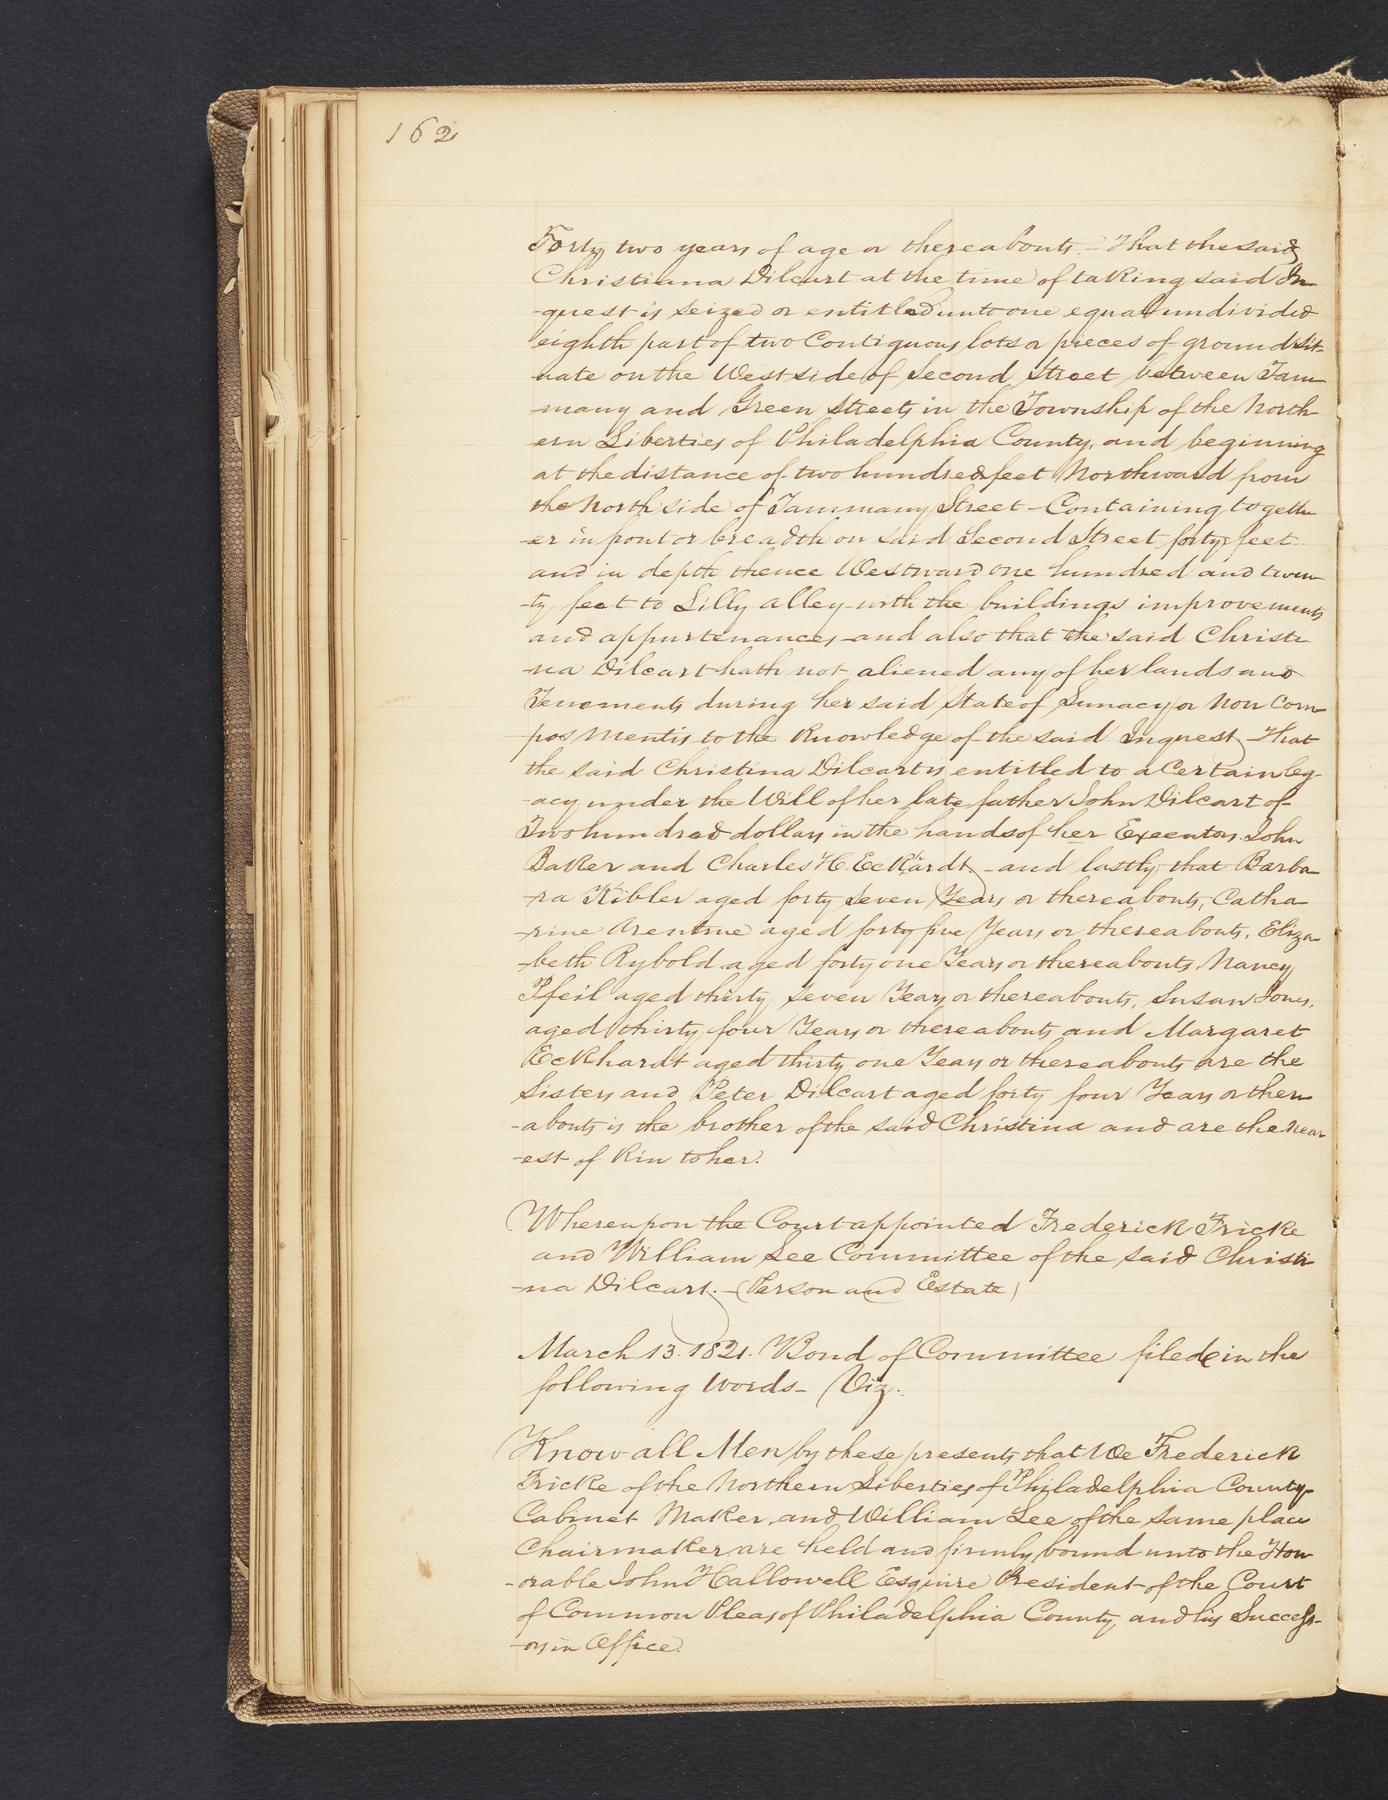 162
Forty two years of age or thereabouts.- That the said
Christiana Dilcart at the time of taking said In
-quest is seized or entitled unto one equal undivided
eighth part of two Contiguous lots or pieces of ground sit-
uate on the West side of Second Street between Tam
-many and Green Streets in the Township of the North-
ern Liberties of Philadelphia County, and beginning
at the distance of two hundred feet Northward from
the North side of Tammany Street - Containing togeth
-er in front or breadth on said Second Street forty feet
and in depth thence Westward one hundred and twen
-ty feet to Lilly alley with the buildings improvements
and appurtenances, and also that the said Christi
-na Dilcart hath not aliened any of her lands and
Tenements during her said State of Lunacy or Non Com
-pos Mentis to the Knowledge of the said Inquest, That
the said Christina Dilcart is entitled to a Certain leg-
-acy under the Will of her late father John Dilcart of
Two hundred dollars in the hands of her Executors John
Baker and Charles H. Eckardt, - and lastly that Barba
-ra Kibler aged forty seven Years or thereabouts, Catha
-rine aged forty five Years or thereabouts, Eliza
-beth Rybold aged forty one Years or thereabouts, Nancy
Pfeil aged thirty seven Years or thereabouts, Susan Jones,
aged thirty four Years or thereabouts and Margaret
Eckhardt aged thirty one Years or thereabouts are the
Sisters and Peter Dilcart aged forty four Years or there
-abouts is the brother of the said Christina and are the near
-est of Kin to her.
Whereupon the Court appointed Frederick Fricke
and William Lee Committee of the said Christi
-na Dilcart. - (Person and Estate)
March 13. 1821. Bond of Committee filed in the
following words - Viz.
Know all Men by these presents that We Frederick
Fricke of the Northern Liberties of Philadelphia County
Cabinet Maker, and William Lee of the Same place
Chairmaker are held and firmly bound unto the Hon
-orable John Hallowell Esquire President of the Court
of Common Pleas of Philadelphia County, and his Success-
-ors in Office.